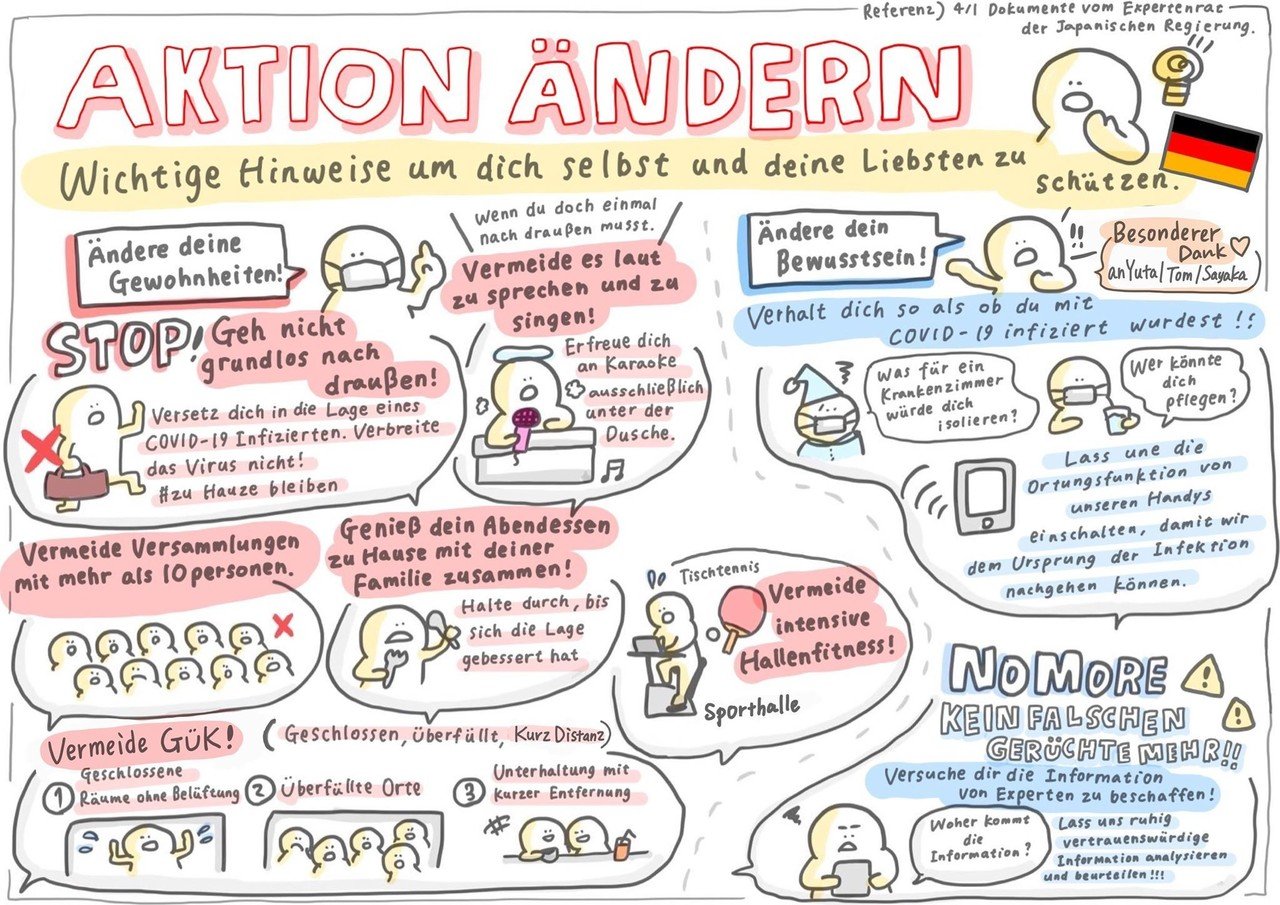 Referenz) 4/1 Dokumente vom Expertenrat
der Japanischen Regierung.
AKTION ÄNDERN
Wichtige Hinweise um dich selbst und deine Liebsten zu
schützen.
Ändere deine
Gewohnheiten!
STOP!
Geh nicht
grundlos nach
draußen!
Versetz dich in die Lage eines
COVID-19 Infizierten. Verbreite
das Virus nicht!
#zu Hauze bleiben
Wenn du doch einmal
nach draußen musst.
Vermeide es laut
zu sprechen und zu
singen!
Erfreue dich
an Karaoke
ausschließlich
unter der
Dusche.
Vermeide Versammlungen
mit mehr als 10 personen.
Genieß dein Abendessen
zu Hause mit deiner
Familie zusammen!
Halte durch, bis
sich die Lage
gebessert hat
Tischtennis
Vermeide
intensive
Hallenfitness!
Sporthalle
Vermeide GÜK!
(Geschlossen, Überfüllt, Kurz Distanz)
1 Geschlossene
Räume ohne Belüftung
2 Überfüllte Orte
3 Unterhaltung mit
kurzer Entfernung
Ändere dein
Bewusstsein!
Besonderer
Dank
an Yuta/Tom/Sayaka
Verhalt dich so als ob du mit
COVID-19 infiziert wurdest!!
Was für ein
Krankenzimmer
würde dich
isolieren?
Wer könnte
dich
pflegen?
Lass une die
Ortungsfunktion von
unseren Handys
einschalten, damit wir
dem Ursprung der Infektion
nachgehen können.
NO MORE
KEIN FALSCHEN
GERÜCHTE MEHR!!
Versuche dir die Information
von Experten zu beschaffen!
Woher kommt
die
Information?
Lass uns ruhig
vertrauenswürdige
Information analysieren
und beurteilen!!!